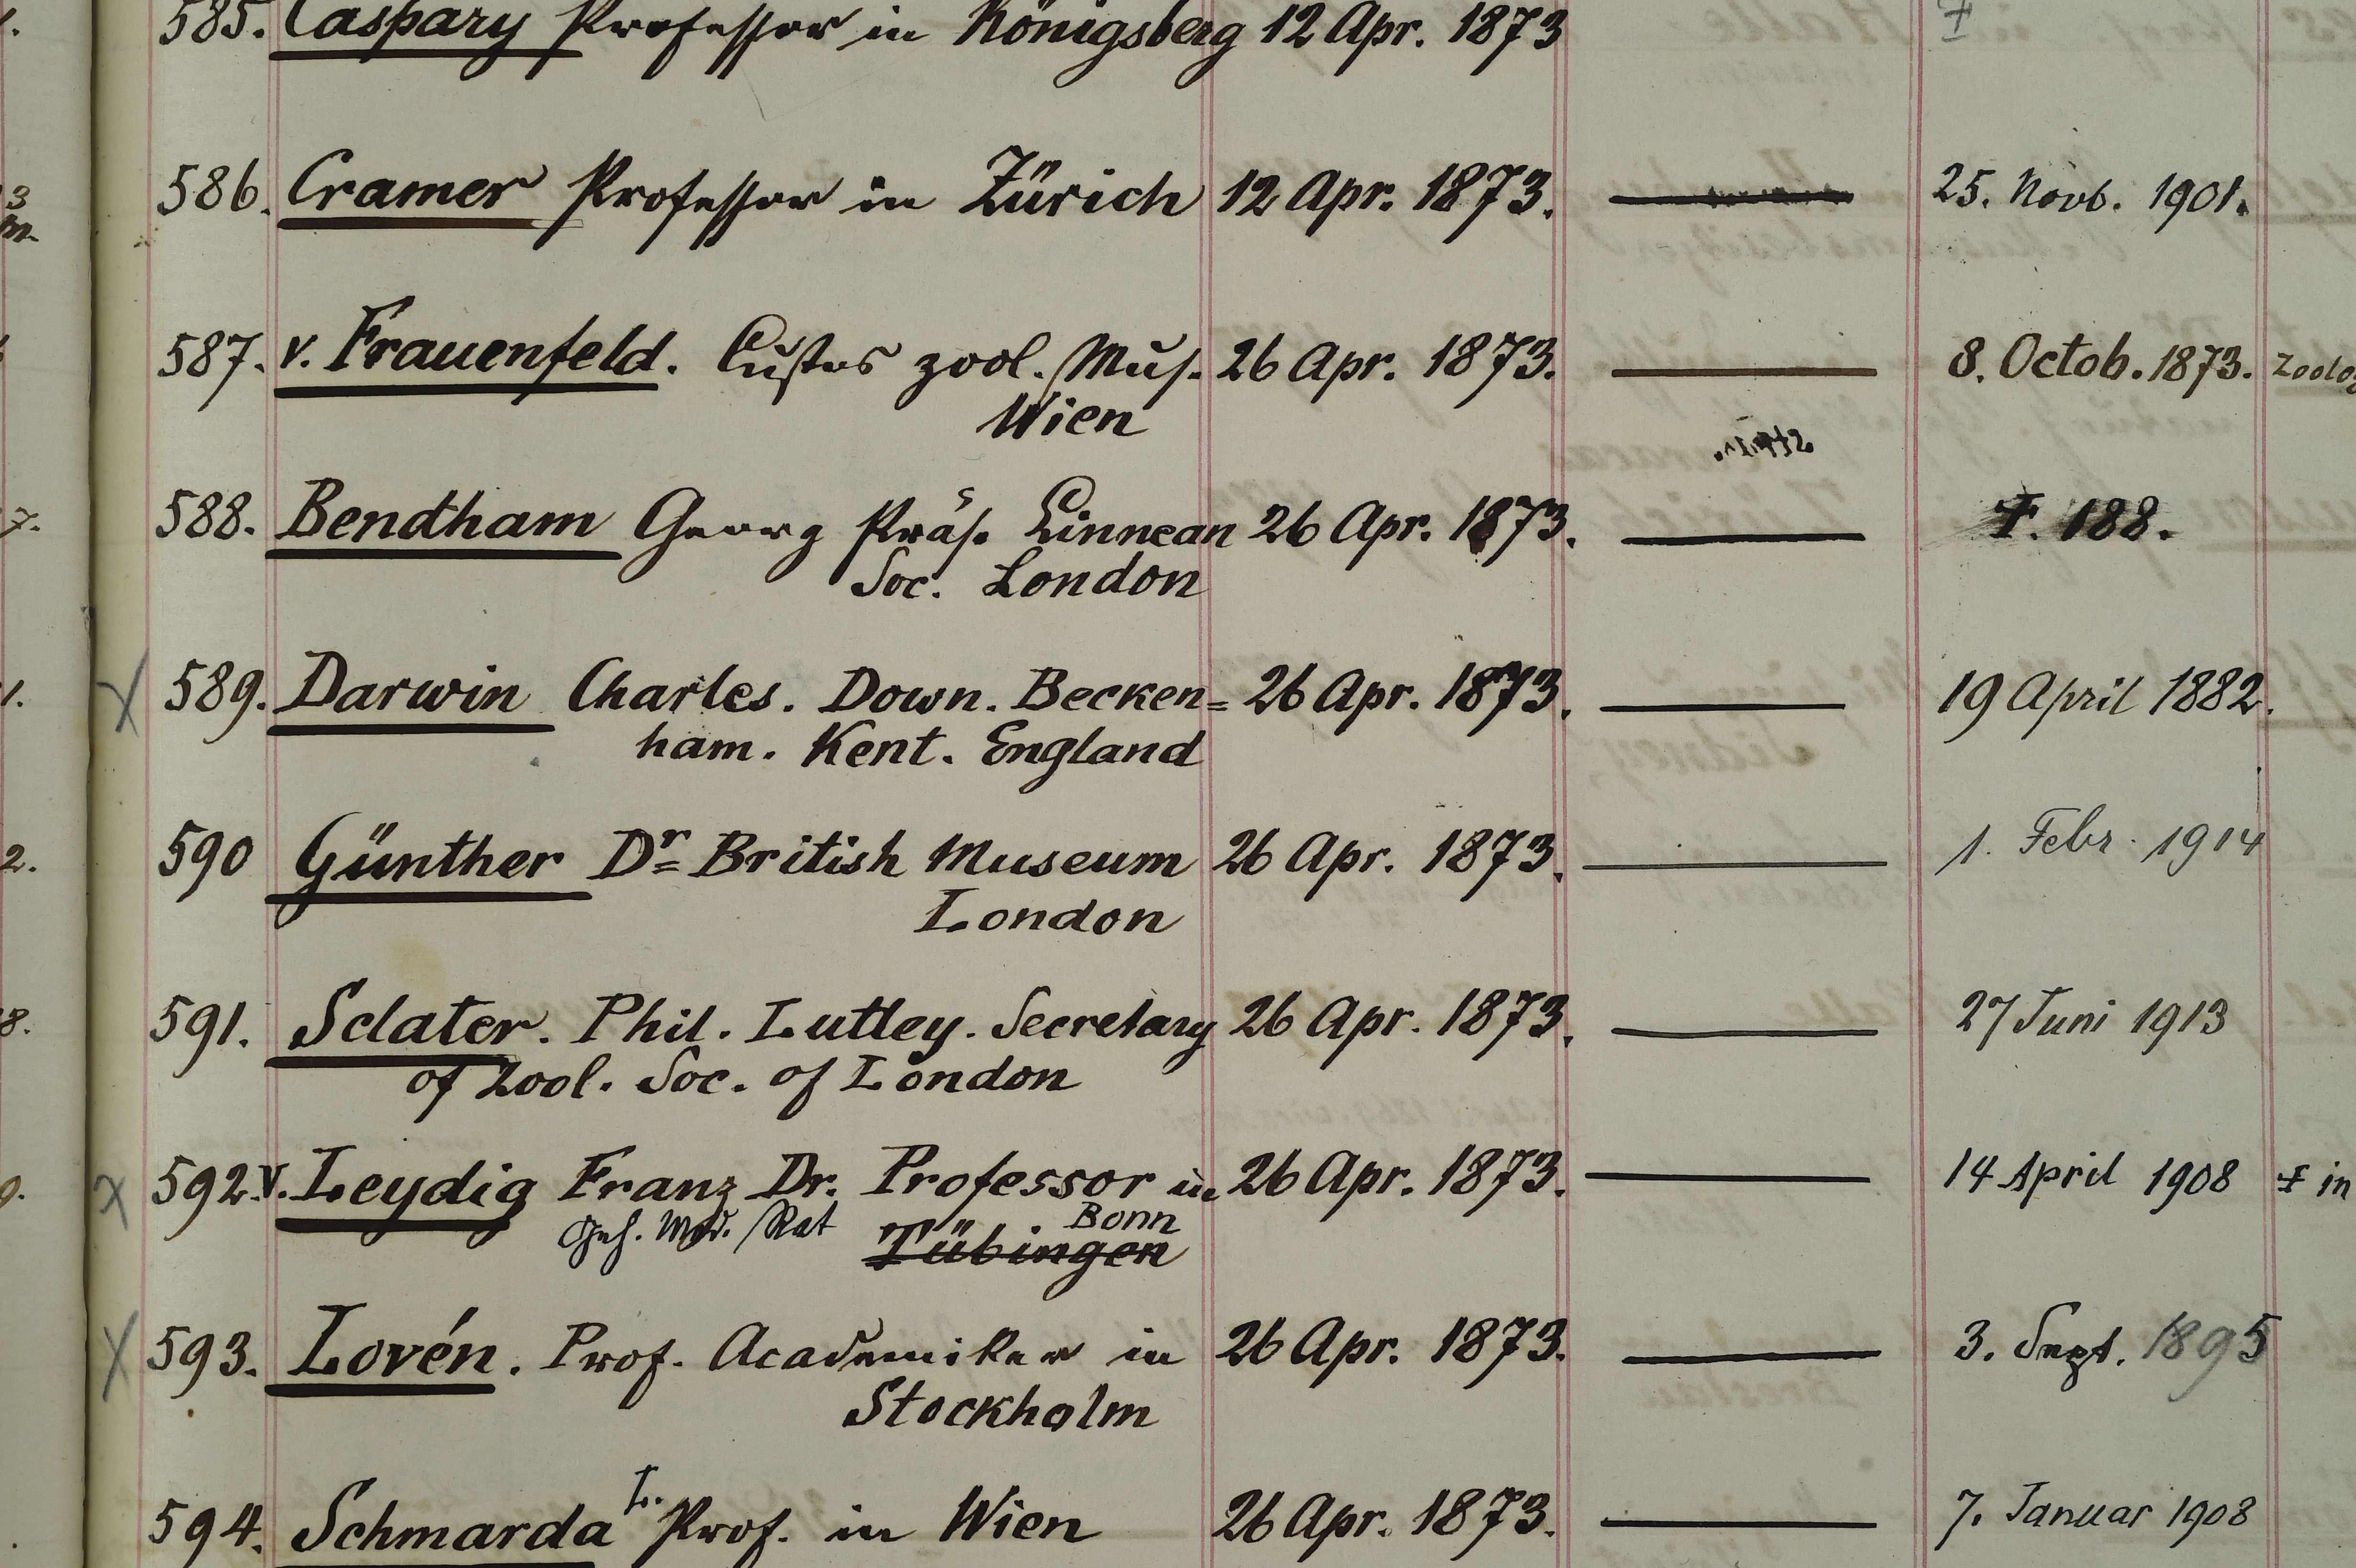 585. Caspary Professor in Königsberg 12 Apr. 1873 ‡
586. Cramer Professor in Zürich 12 Apr. 1873. 25. Novb. 1901.
587. v. Frauenfeld. Custos zool. Mus. 26 Apr. 1873. 8. Octob. 1873. Zoolog
Wien
588. Bendham Georg Präs. Linnean 26 Apr. 1873. ‡. 188.
Soc. London
589. Darwin Charles. Down. Becken= 26 Apr. 1873. 19 April 1882.
ham. Kent. England
590 Günther Dr British Museum 26 Apr. 1873. 1. Febr. 1914
London
591. Sclater. Phil. Lutley. Secretary 26 Apr. 1873. 27 Juni 1913
of Zool. Soc. of London
592. v. Leydig Franz Dr. Professor in 26 Apr. 1873. 14 April 1908 ‡ in
Geh. Med. Rat Bonn
Tübingen
593. Lovén. Prof. Academiker in 26 Apr. 1873. 3. Sept. 1895
Stockholm
594. Schmarda L. Prof. in Wien 26 Apr. 1873. 7. Januar 1908